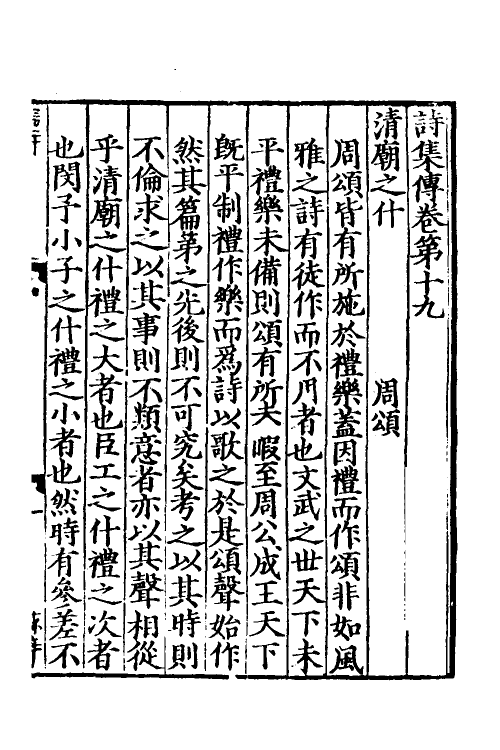 詩集傳卷第十九
清廟之什　周頌
周頌皆有所施於禮樂蓋因禮而作頌非如風
雅之詩有徒作而不用者也文武之世天下未
平禮樂未備則頌有所未暇至周公成王天下
旣平制禮作樂而爲詩以歌之於是頌聲始作
然其篇第之先後則不可究矣考之以其時則
不倫求之以其事則不類意者亦以其聲相從
乎清廟之什禮之大者也臣工之什禮之次者
也閔子小子之什禮之小者也然時有參差不